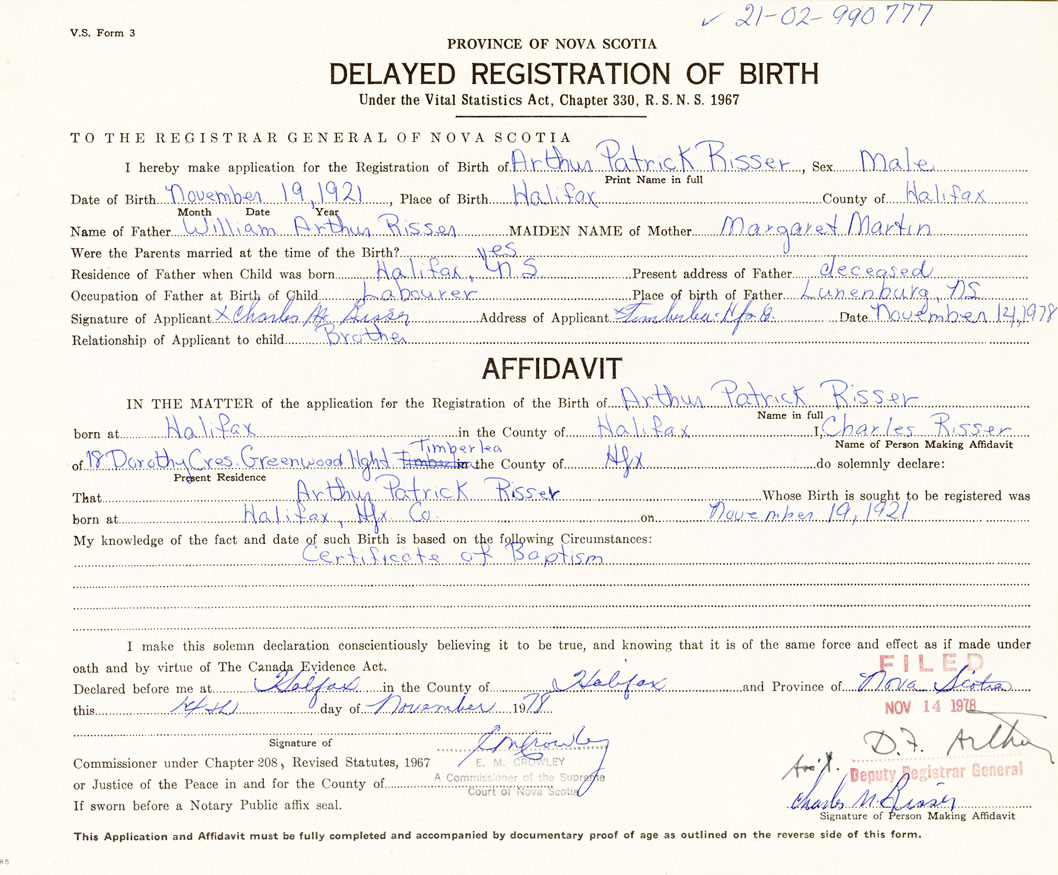 ✓ 21-02-990777
V.S. Form 3
PROVINCE OF NOVA SCOTIA
DELAYED REGISTRATION OF BIRTH
Under the Vital Statistics Act, Chapter 330, R. S. N. S. 1967
TO THE REGISTRAR GENERAL OF NOVA SCOTIA
I hereby make application for the Registration of Birth of Arthur Patrick Risser, Sex Male
Print Name in full
Date of Birth November 19, 1921, Place of Birth Halifax County of Halifax
Month Date Year
Name of Father William Arthur Risser MAIDEN NAME of Mother Margaret Martin
Were the Parents married at the time of the Birth? yes
Residence of Father when Child was born Halifax, NS Present address of Father deceased
Occupation of Father at Birth of Child Labourer Place of birth of Father Lunenburg, NS
Signature of Applicant x Charles M Risser Address of Applicant Timberlea Hfx Date November 14, 1978
Relationship of Applicant to child Brother
AFFIDAVIT
IN THE MATTER of the application for the Registration of the Birth of Arthur Patrick Risser
Name in full
born at Halifax in the County of Halifax I, Charles Risser
Name of Person Making Affidavit
of 18 Dorothy Cres. Greenwood Hght Timberlea in the County of Hfx do solemnly declare:
Present Residence
That Arthur Patrick Risser Whose Birth is sought to be registered was
born at Halifax, Hfx Co. on November 19, 1921
My knowledge of the fact and date of such Birth is based on the following Circumstances:
Certificate of Baptism
I make this solemn declaration conscientiously believing it to be true, and knowing that it is of the same force and effect as if made under
oath and by virtue of The Canada Evidence Act.
FILED
Declared before me at Halifax in the County of Halifax and Province of Nova Scotia
this day of November 1978
NOV 14 1978
Signature of
Commissioner under Chapter 208, Revised Statutes, 1967
or Justice of the Peace in and for the County of
If sworn before a Notary Public affix seal.
E M Crowley
E. M. CROWLEY
A Commissioner of the Supreme
Court of Nova Scotia
D. F. Arthur
Ass't. Deputy Registrar General
Charles M. Risser
Signature of Person Making Affidavit
This Application and Affidavit must be fully completed and accompanied by documentary proof of age as outlined on the reverse side of this form.